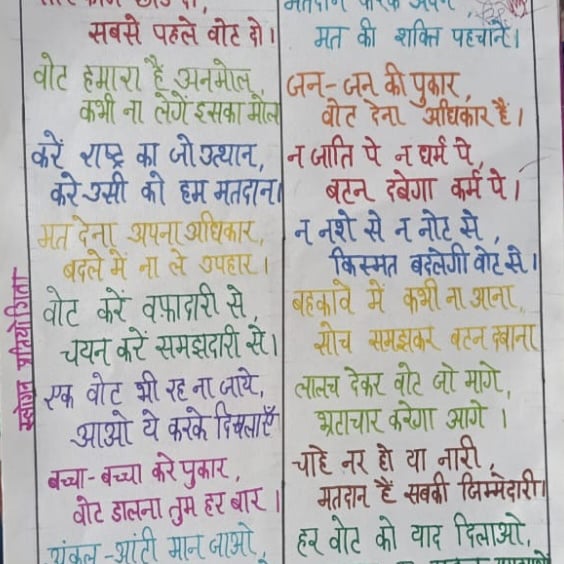 सबसे पहले वोट दो।
वोट हमारा है अनमोल,
कभी ना लेगें इसका मोल
करें राष्ट्र का जो उत्थान,
करे उसी को हम मतदान।
मत देना अपना अधिकार,
बदले में ना ले उपहार।
वोट करें वफ़ादारी से,
चयन करें समझदारी से।
एक वोट भी रह ना जाये,
आओ ये करके दिखलाएँ
बच्चा-बच्चा करे पुकार,
वोट डालना तुम हर बार।
अंकल-आंटी मान जाओ,
मत की शक्ति पहचाने।
जन-जन की पुकार,
वोट देना अधिकार हैं।
न जाति पे न धर्म पे,
बटन दबेगा कर्म पे।
न नशे से न नोट से,
किस्मत बदलेगी वोट से।
बहकावे में कभी ना आना,
सोच समझकर बटन दबाना
लालच देकर वोट जो मागे,
भ्रटाचार करेगा आगे।
चाहे नर हो या नारी,
मतदान हैं सबकी जिम्मेदारी।
हर वोट को याद दिलाओ,
प्रतियोगिता